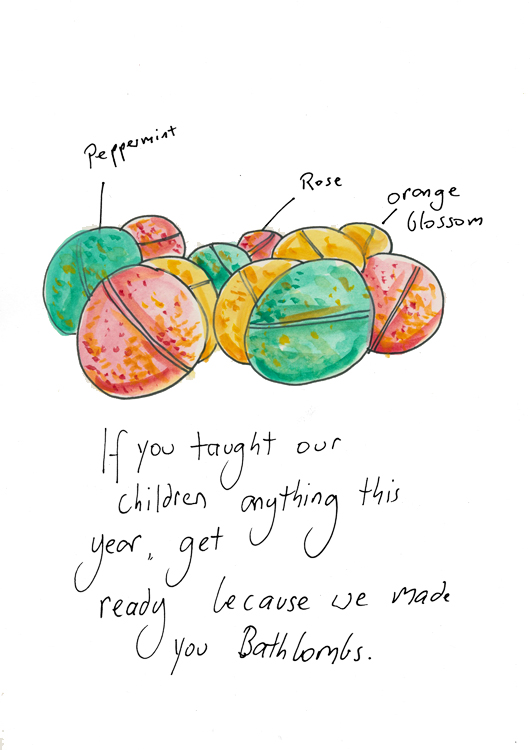 Peppermint
Rose
orange
blossom
If you taught our
children anything this
year, get
ready because we made
you Bathbombs.